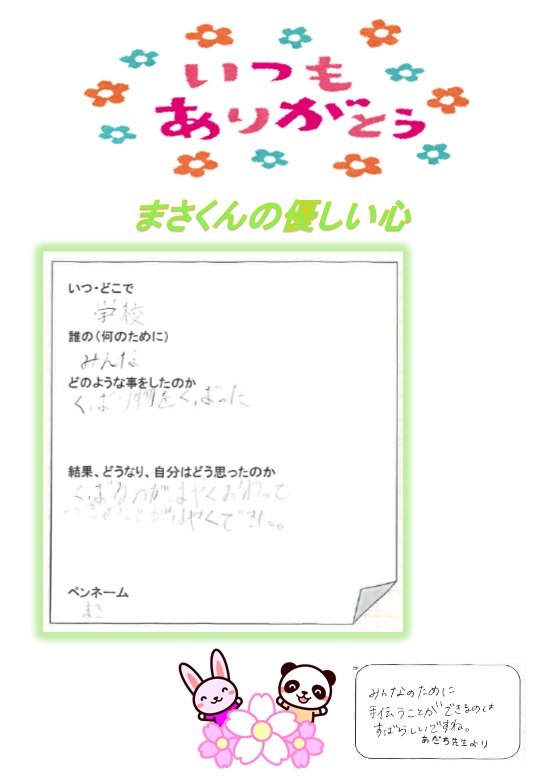 いつも
ありがとう
まさくんの優しい心
いつ・どこで
学校
誰の(何のために)
みんな
どのような事をしたのか
くばり物をくばった
結果、どうなり、自分はどう思ったのか
くばるのがはやくおわって
つぎのことがはやくできた。
ペンネーム
まさ
みんなのために
手伝うことができるのは
すばらしいですね。
あだち先生より